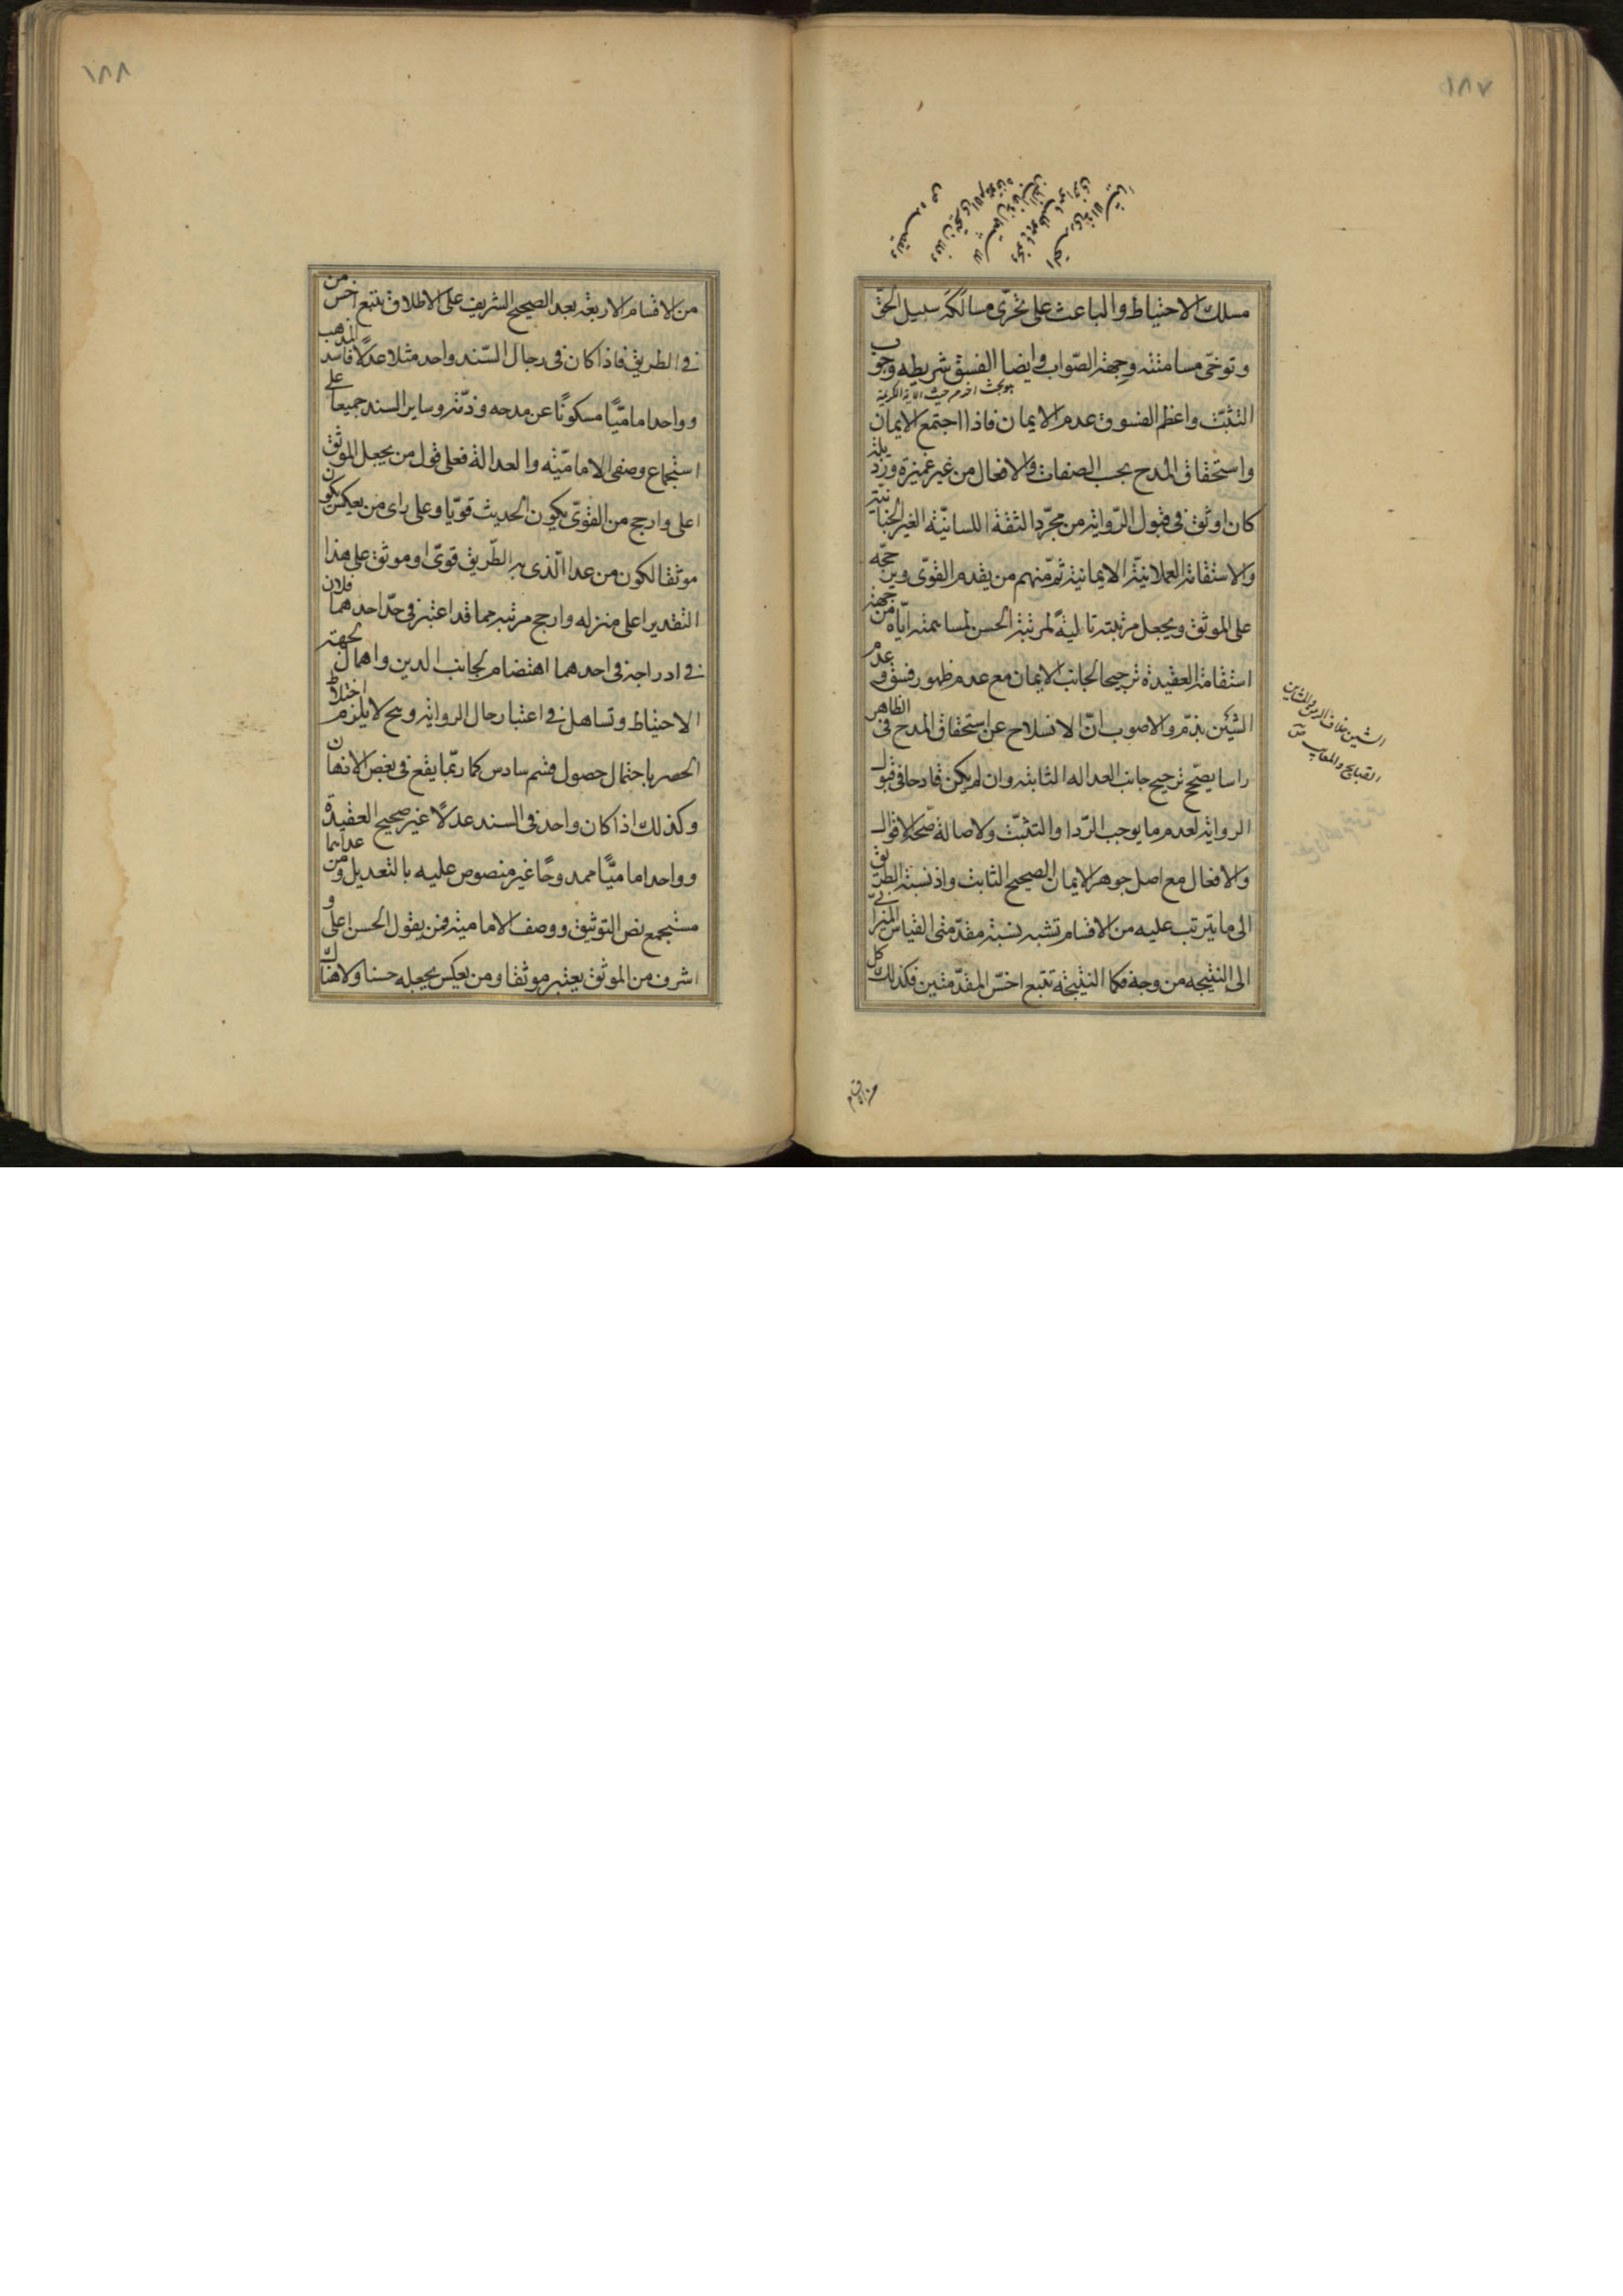 ١٨٧
مسلك الاحتياط والباعث على تحرّى مسالكة سبيل الحقّ
وتوخّى مسامتته وجهة الصّواب وايضا الفسق شريطه وجوب
هو بحث اخر من حيث الاية الكريمة
التثبّت واعظم الفسوق عدم الايمان فاذا اجتمع الايمان
واستحقاق المدح بحسب الصفات والافعال من غير غميزة ورذيلة
كان اوثق فى قبول الرّواية من مجرّد الثقة اللسانيّة الغير الجنانيّة
والاستقامة العملانيّة الايمانية ثمّ منهم من يقدم القوّى ويرجّحه
على الموثق ويجعل مرتبته تالية لمرتبة الحسن لمساهمته ايّاه من جهة
استقامة العقيدة ترجيحا لجانب الايمان مع عدم ظهور فسق وعدم
الشين بذمّ والاصوب انّ الانسلاح عن استحقاق المدح فى الظاهر
راسا يصحّح ترجيح جانب العداله الثابته وان لم يكن قادحا فى قبول
الرواية لعدم ما يوجب الرّدا والتثبّت ولاصالة صّحة الاقوال
والافعال مع اصل جوهر الايمان الصحيح الثابت واذ نسبة الطريق
الى ما يترتب عليه من الاقسام تشبه نسبة مقدّمتى القياس المنزلى
الى النتيجه من وجه فكما النتيجة تتبع اخسّ المقدّمتين فكذلك كل
الشين خلاف الزين والمشاين
القبايح والمعايب
من الاقسام
١٨٨
من الاقسام الاربعة بعد الصحيح الشريف على الاطلاق تتبع اخس من
فى الطريق فاذا كان فى رجال السّند واحد مثلا عدلًا فاسد المذهب
وواحد اماميًّا مسكوتًا عن مدحه وذمّه وساير السند جميعا على
استجماع وصفى الاماميّة والعدالة فعلى قول من يجعل الموثق
اعلى وارجح من القوّى يكون الحديث قويّا وعلى راى من يعكس يكون
موثقا لكون من عدا الّذى به الطّريق قوىّ او موثق على هذا
التقدير اعلى منزله وارجح مرتبة مما قد اعتبر فى حدّ احدهما فلان
فى ادراجه فى احدهما اهتضام لجانب الدين واهمال لجهة
الاحتياط وتساهل فى اعتبار رجال الرواية وح لا يلزم اختلاط
الحصر باحتمال حصول قسم سادس كما ربّما يقع فى بعض الاذهان
وكذلك اذا كان واحد فى السند عدلًا غير صحيح العقيدة
وواحد اماميًّا ممدوحًا غير منصوص عليه بالتعديل ومن عداهما
مستجمع نص التوثيق ووصف الامامية فمن يقول الحسن اعلى و
اشرف من الموثق يعتبر موثقا ومن يعكس يجعله حسنا ولا هناك